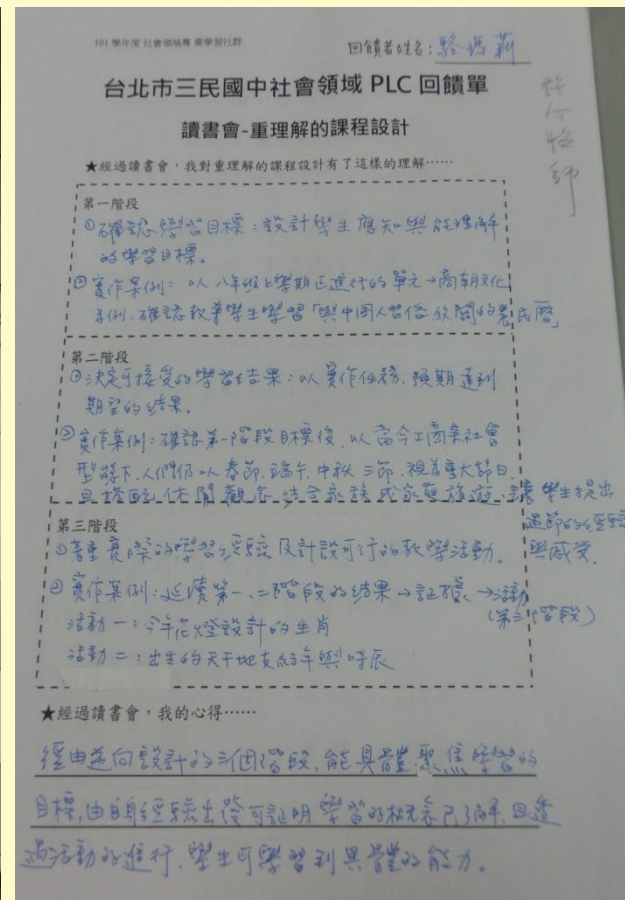 101 學年度 社會領域專業學習社群
回饋者姓名：駱瑪莉
台北市三民國中社會領域 PLC 回饋單
讀書會-重理解的課程設計
★經過讀書會，我對重理解的課程設計有了這樣的理解……
第一階段
①確認學習目標：設計學生應知與能理解
的學習目標。
②實作案例：以八年級上學期已進行的單元→商朝文化
為例．確認教導學生學習「與中國人習俗攸關的農民曆」
第二階段
①決定可接受的學習結果：以實作任務．預期達到
期望的結果。
②實作案例：確認第一階段目標後．以當今工商業社會
型態下．人們仍以春節．端午．中秋三節．視為重大節日
且搭配休閒觀念結合家族或家庭旅遊．讓學生提出
過節的經驗
與感受．
第三階段
①著重實際的學習經驗及計設可行的教學活動．
②實作案例：延續第一、二階段的結果→証據→活動
(第三階段)
活動一：今年花燈設計的生肖
活動二：出生的天干地支紀年與時辰
★經過讀書會，我的心得……
經由逆向設計的三個階段，能具體聚焦學習的
目標，由自身經驗出發可証明學習的概念已了解．且透
過活動的進行．學生可學習到具體的能力。